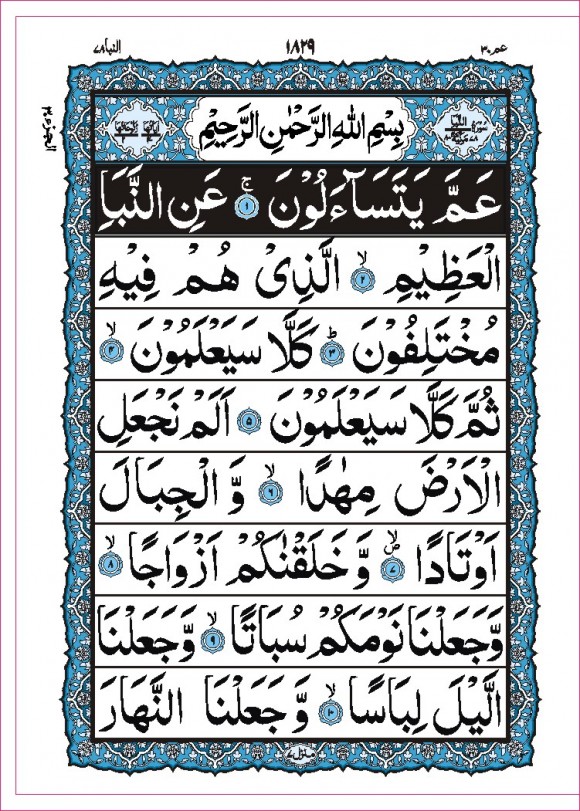 عم ٣٠
١٨٢٩
النبا ٧٨
الجزء ٣٠
بِسْمِ اللهِ الرَّحْمٰنِ الرَّحِيْمِ
عَمَّ يَتَسَآءَلُوْنَ ۚ ١ عَنِ النَّبَاِ
الْعَظِيْمِ ۙ ٢ الَّذِىْ هُمْ فِيْهِ
مُخْتَلِفُوْنَ ؕ ٣ كَلَّا سَيَعْلَمُوْنَ ۙ ٤
ثُمَّ كَلَّا سَيَعْلَمُوْنَ ٥ اَلَمْ نَجْعَلِ
الْاَرْضَ مِهٰدًا ۙ ٦ وَّ الْجِبَالَ
اَوْتَادًا ۪ۙ ٧ وَّ خَلَقْنٰكُمْ اَزْوَاجًا ۙ ٨
وَّجَعَلْنَا نَوْمَكُمْ سُبَاتًا ۙ ٩ وَّجَعَلْنَا
الَّيْلَ لِبَاسًا ۙ ١٠ وَّ جَعَلْنَا النَّهَارَ